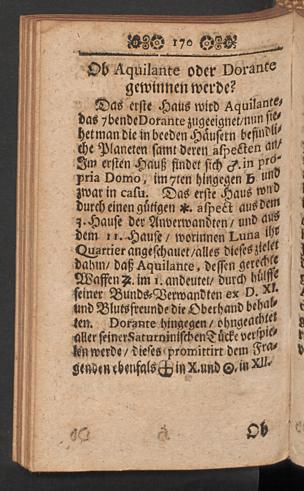 170
Ob Aquilante oder Dorante
gewinnen werde?
Das erste Haus wird Aquilante,
das 7bende Dorante zugeeignet/nun sie-
het man die in beeden Häusern befindli-
che Planeten samt deren aspecten an/
Im ersten Hauß findet sich ♂. in pro-
pria Domo, im 7ten hingegen ♄ und
zwar in casu. Das erste Haus wird
durch einen gütigen ⚹. aspect aus dem
3. Hause der Anverwandten/ und aus
dem 11. Hause/ worinnen Luna ihr
Quartier angeschauet/alles dieses zielet
dahin/ daß Aquilante, dessen gerechte
Waffen ♃. im 1. andeutet/ durch hülffe
seiner Bunds-Verwandten ex D. XI.
und Blutsfreunde die Oberhand behal-
ten. Dorante hingegen/ ohngeachtet
aller seiner Saturninischen Tücke verspie-
len werde/ dieses promittirt dem Fra-
genden ebenfals ⊕ in X. und ☉. in XII.
Ob